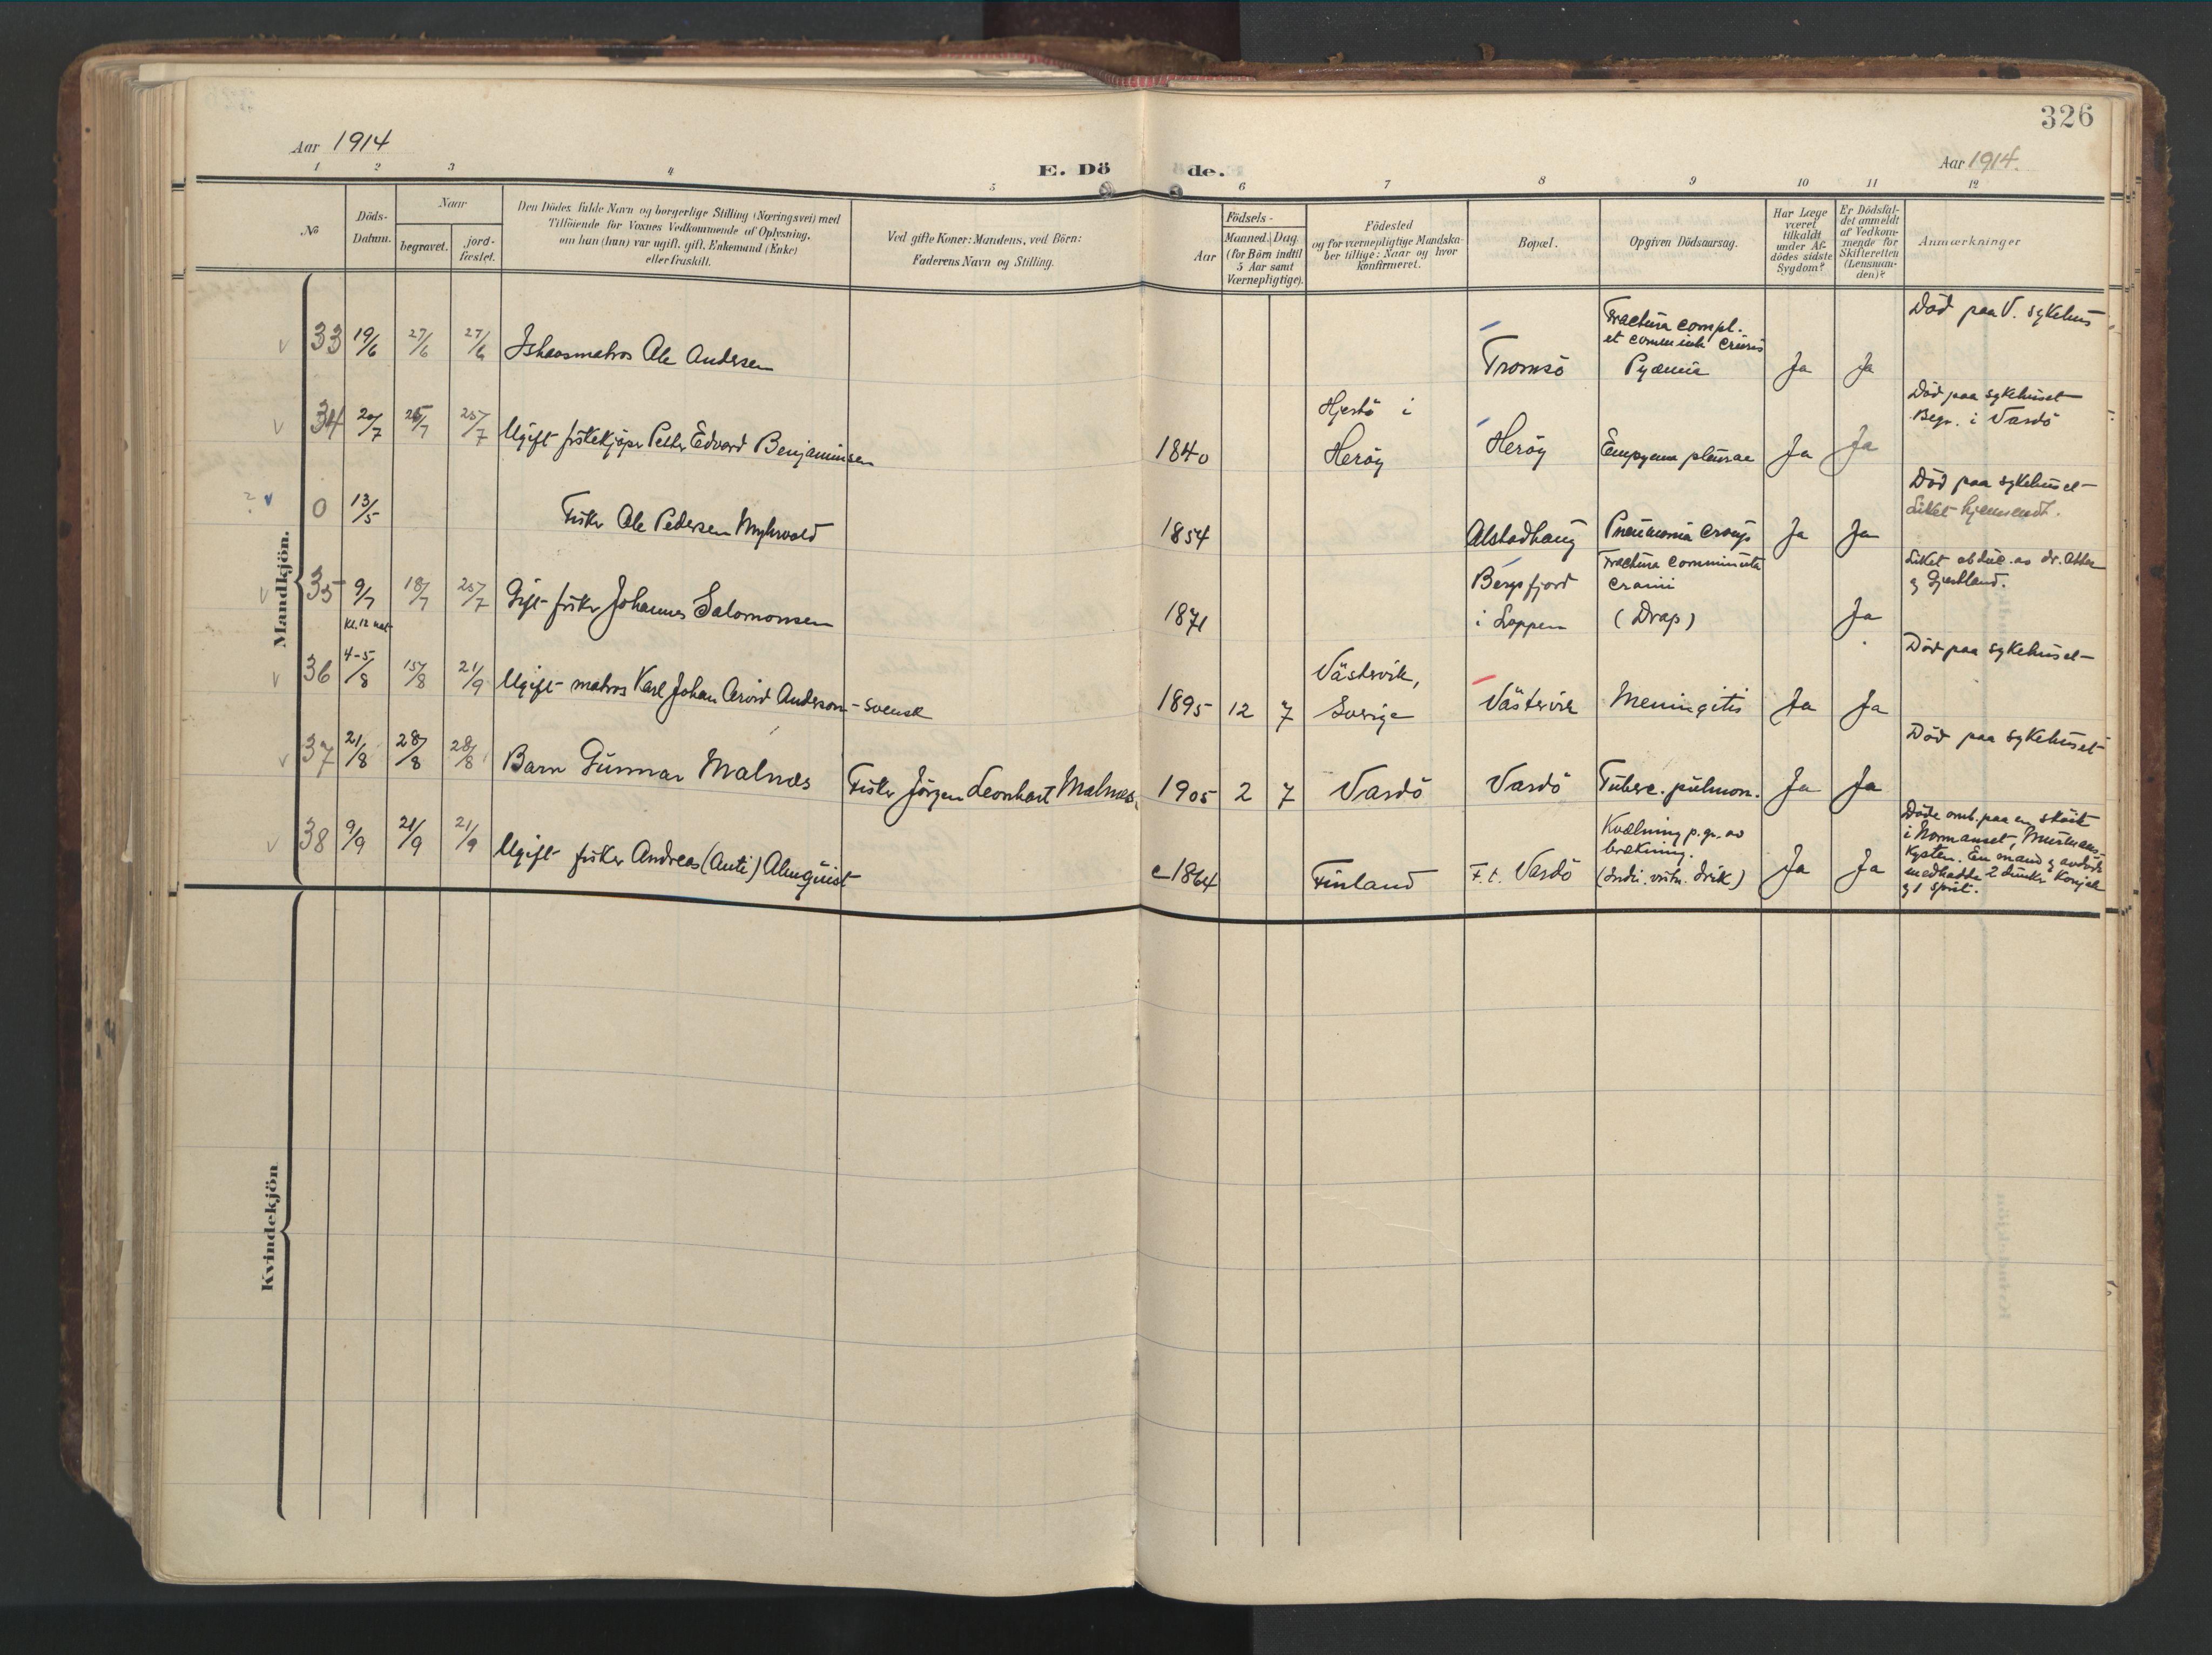 326
Aar 1914
E. Dö de.
Aar 1914.
1 2 3 4 5 6 7 8 9 10 11 12
No
Döds-
Datum.
Naar
begravet.
jord-
fæstet.
Den Dödes fulde Navn og borgerlige Stilling (Næringsvei) med
Tilföiende for Voxnes Vedkommende af Oplysning,
om han (hun) var ugift, gift, Enkemand (Enke)
eller fraskilt.
Ved gifte Koner: Mandens, ved Börn:
Faderens Navn og Stilling.
Födsels-
Aar
Maaned. Dag.
(for Börn indtil
5 Aar samt
Værnepligtige).
Födested
og for værnepligtige Mandska-
ber tillige: Naar og hvor
konfirmeret.
Bopæl.
Opgiven Dödsaarsag.
Har Læge
været
tilkaldt
under Af-
dödes sidste
Sygdom?
Er Dödsfal-
det anmeldt
af Vedkom-
mende for
Skifteretten
(Lensman-
den)?
Anmærkninger
Mandkjön.
33 19/6 27/6 27/6 Ishavsmatros Ole Andersen
Tromsö
Fractura compl.
et comminut cruris
Pyæmia
Ja Ja
Död paa V. sykehus
34 20/7 25/7 25/7 Ugift fiskekjöper Petter Edvard Benjaminsen
1840
Hjertö i
Heröy
Heröy Empyema pleurae Ja Ja
Död paa sykehuset
Begr. i Vardö
0 13/5 Fisker Ole Pedersen Myhrvold
1854 Alstadhaug Pneumonia croup Ja Ja
Död paa sykehuset
Liket hjemsendt.
35 9/7 18/7 25/7 Gift fisker Johannes Salomonsen
Kl. 12 nat
1871
Bergsfjord
i Loppen
Fractura comminuta
cranii
(Drap)
Ja
Liket obduc. av dr.
36 4-5/8 15/8 21/9 Ugift matros Karl Johan Arvid Anderson - svensk
1895 12 7
Västervik,
Sverige
Västervik Meningitis Ja Ja
Död paa sykehuset
37 21/8 28/8 28/8 Barn Gunnar Malnæs Fisker Jörgen Leonhart Malnæs.
1905 2 7 Vardö Vardö Tuberc. pulmon. Ja Ja
Död paa sykehuset
38 9/9 21/9 21/9 Ugift fisker Andreas (Anti) Almquist
c 1864 Finland F. t. Vardö
Kvælning p. gr. av
brækning.
Ja Ja
Döde omb. paa en sköit
i Normanset, Murmans-
kysten. En mand og avdöde
medhadde 2 dunker Konjak
og 1 sprit.
Kvindekjön